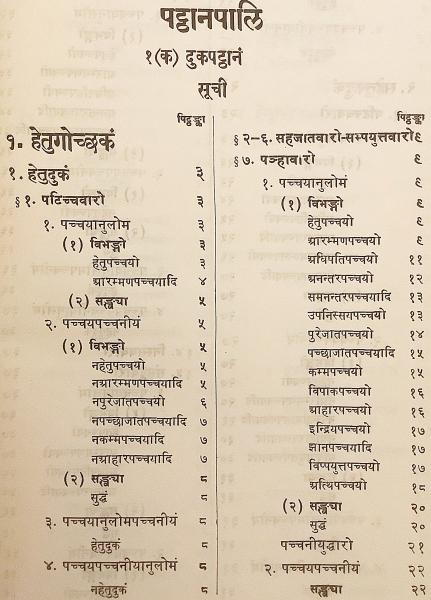 पट्टानपालि
१(क) दुकपट्ठानं
सूची
पिट्ठङ्का
१. हेतुगोच्छकं
१. हेतुदुकं ३
§ १. पटिच्चवारो ३
१. पच्चयानुलोमं ३
(१) विभङ्गो ३
हेतुपच्चयो ३
आरम्मणपच्चयादि ४
(२) सङ्ख्या ५
२. पच्चयपच्चनीयं ५
(१) विभङ्गो ५
नहेतुपच्चयो ५
नआरम्मणपच्चयादि ५
नपुरेजातपच्चयादि ६
नपच्छाजातपच्चयादि ७
नकम्मपच्चयादि ७
नआहारपच्चयादि ७
(२) सङ्ख्या ८
सुद्धं ८
३. पच्चयानुलोमपच्चनीयं ८
हेतुदुकं ८
४. पच्चयपच्चनीयानुलोमं ८
नहेतुदुकं ८
पिट्ठङ्का
§ २-६. सहजातवारो-सम्पयुत्तवारो ९
§ ७. पञ्हावारो ९
१. पच्चयानुलोमं ९
(१) विभङ्गो ९
हेतुपच्चयो ९
आरम्मणपच्चयो ९
अधिपतिपच्चयो ११
अनन्तरपच्चयो १२
समनन्तरपच्चयादि १३
उपनिस्सयपच्चयो १३
पुरेजातपच्चयो १४
पच्छाजातपच्चयादि १५
कम्मपच्चयो १५
विपाकपच्चयो १६
आहारपच्चयो १६
इन्द्रियपच्चयो १७
झानपच्चयादि १७
विप्पयुत्तपच्चयो १७
अत्थिपच्चयो १८
(२) सङ्ख्या २०
सुद्धं २०
पच्चनीयुद्धारो २१
२. पच्चयपच्चनीयं २२
सङ्ख्या २२